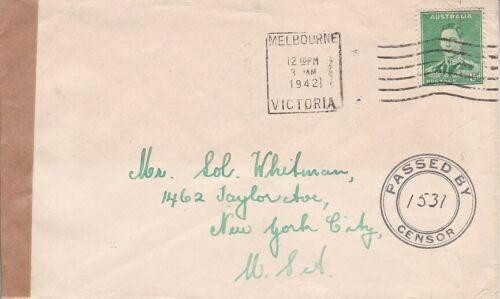 MELBOURNE
12 10PM
3 JAN
1942
VICTORIA
AUSTRALIA
POSTAGE
Mr. Sol. Whitman,
1462 Taylor Ave,
New York City,
U.S.A.
PASSED BY
1531
CENSOR